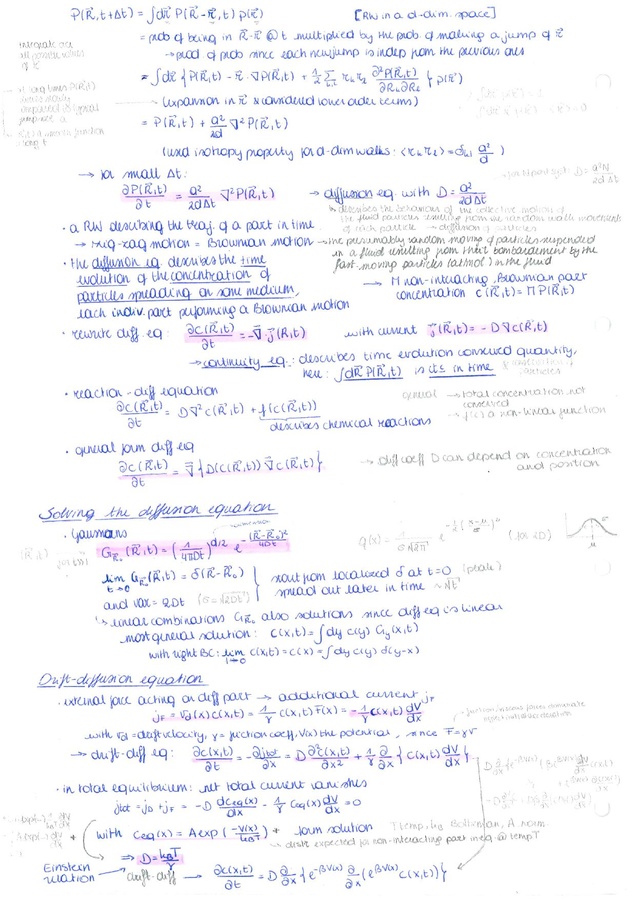 P(R⃗,t+Δt) = ∫dr⃗ P(R⃗-r⃗,t) p(r⃗) [RW in a d-dim. space]
= prob of being in R⃗-r⃗ @ t multiplied by the prob of making a jump of r⃗
→ prod of prob since each new jump is indep from the previous ones
integrate over
all possible values
of r⃗
= ∫dr⃗ { P(R⃗,t) - r⃗ · ∇P(R⃗,t) + 1/2 Σ r_k r_l ∂²P(R⃗,t)/∂R_k∂R_l } p(r⃗)
(expansion in r⃗ & considered lower order terms)
= P(R⃗,t) + a²/2d ∇²P(R⃗,t)
(used isotropy property for d-dim walks: <r_k r_l> = δ_kl a²/d)
→ for small Δt:
∂P(R⃗,t)/∂t = a²/2dΔt ∇²P(R⃗,t) → diffusion eq. with D = a²/2dΔt
→ describes the behaviour of the collective motion of
the fluid particles resulting from the random walk movements
of each particle → diffusion of particles
• a RW describing the traj. of a part in time
→ zig-zag motion = Brownian motion → the presumably random moving of particles suspended
in a fluid resulting from their bombardement by the
fast-moving particles (at/mol) in the fluid
• the diffusion eq. describes the time
evolution of the concentration of
particles spreading on some medium,
each indiv. part performing a Brownian motion
→ M non-interacting, Brownian part
concentration c(R⃗,t) = M P(R⃗,t)
• rewrite diff. eq: ∂c(R⃗,t)/∂t = -∇⃗·j⃗(R,t) with current j⃗(R⃗,t) = -D∇c(R⃗,t)
→ continuity eq.: describes time evolution conserved quantity,
here: ∫dR⃗ P(R⃗,t) is cte in time
• reaction-diff equation
∂c(R⃗,t)/∂t = D∇²c(R⃗,t) + f(c(R⃗,t))
describes chemical reactions
general → total concentration not
conserved
→ f(c) a non-linear function
• general form diff eq
∂c(R⃗,t)/∂t = ∇⃗{D(c(R⃗,t)) ∇⃗c(R⃗,t)}
→ diff coeff D can depend on concentration
and position
Solving the diffusion equation
• gaussians
G_R⃗₀(R⃗,t) = (1/4πDt)^d/2 e^-(R⃗-R⃗₀)²/4Dt
g(x) = 1/σ√2π e^-1/2((x-μ)/σ)² (for 2D)
μ
lim t→0 G_R⃗₀(R⃗,t) = δ(R⃗-R⃗₀)
and var = 2Dt (σ=√2Dt)
start from localized δ at t=0 (peak)
spread out later in time ~√t
↳ linear combinations G_R⃗₀ also solutions since diff eq is linear
most general solution: c(x,t) = ∫dy c(y) G_y(x,t)
with right BC: lim t→0 c(x,t) = c(x) = ∫dy c(y) δ(y-x)
Drift-diffusion equation
• external force acting on diff part → additional current j_F
j_F = v_d(x)c(x,t) = 1/γ c(x,t)F(x) = -1/γ c(x,t) dV/dx
with v_d = drift velocity, γ = friction coeff, V(x) the potential, since F⃗=γv⃗
→ drift-diff eq: ∂c(x,t)/∂t = -∂j_tot/∂x = D ∂²c(x,t)/∂x² + 1/γ ∂/∂x {c(x,t) dV/dx}
• in total equilibrium: net total current vanishes
j_tot = j_D + j_F = -D dc_eq(x)/dx - 1/γ c_eq(x) dV/dx = 0
with c_eq(x) = A exp(-V(x)/k_BT) → form solution T temp, k_B Boltzman, A norm.
→ distr expected for non-interacting part in eq. @ temp T
⇒ D = k_BT/γ
Einstein
relation
drift-diff → ∂c(x,t)/∂t = D ∂/∂x {e^-βV(x) ∂/∂x (e^βV(x) c(x,t))}